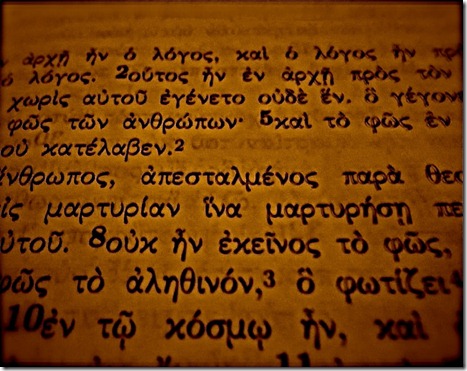 ἀρχῇ ἦν ὁ λόγος, καὶ ὁ λόγος ἦν πρὸ
ὁ λόγος. 2οὗτος ἦν ἐν ἀρχῇ πρὸς τὸν
χωρὶς αὐτοῦ ἐγένετο οὐδὲ ἕν. ὃ γέγονε
φῶς τῶν ἀνθρώπων· 5καὶ τὸ φῶς ἐν
οὐ κατέλαβεν.2
ἄνθρωπος, ἀπεσταλμένος παρὰ θεο
εἰς μαρτυρίαν ἵνα μαρτυρήσῃ πε
αὐτοῦ. 8οὐκ ἦν ἐκεῖνος τὸ φῶς,
φῶς τὸ ἀληθινόν,3 ὃ φωτίζει4
10ἐν τῷ κόσμῳ ἦν, καὶ
11